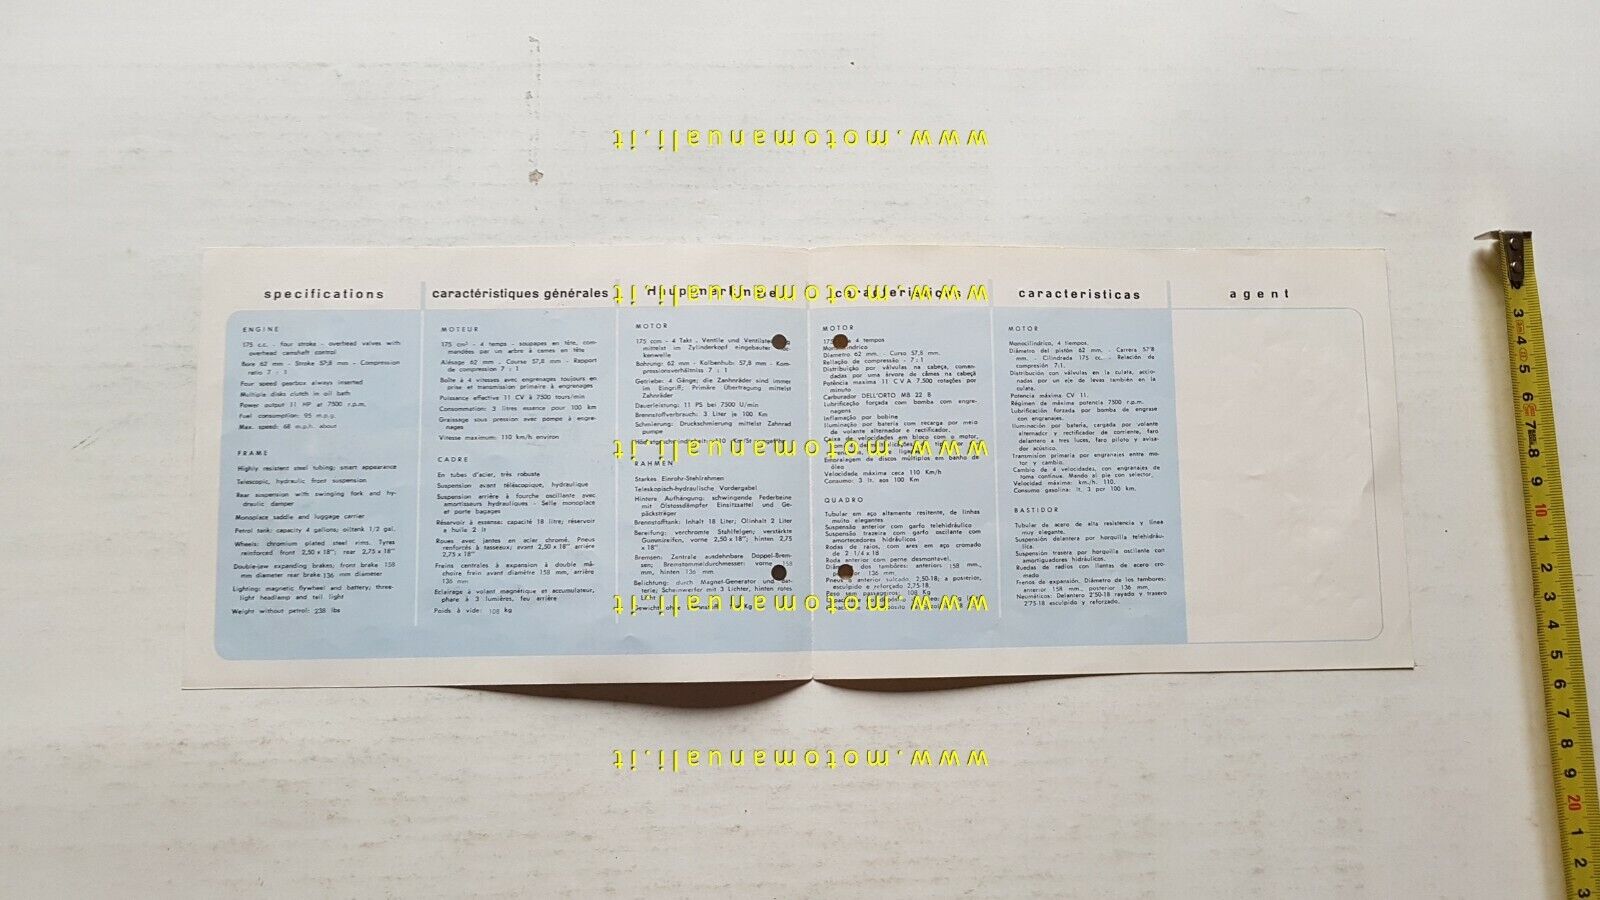 www.motomanuali.it
specifications
ENGINE
175 c.c. - four stroke - overhead valves with
overhead camshaft control
Bore 62 mm - Stroke 57,8 mm - Compression
ratio 7 : 1
Four speed gearbox always inserted
Multiple disks clutch in oil bath
Power output 11 HP at 7500 r.p.m.
Fuel consumption: 95 m.p.g.
Max. speed: 68 m.p.h. about
FRAME
Highly resistent steel tubing; smart appearance
Telescopic, hydraulic front suspension
Rear suspension with swinging fork and hy-
draulic damper
Monoplace saddle and luggage carrier
Petrol tank: capacity 4 gallons; oiltank 1/2 gal.
Wheels: chromium plated steel rims. Tyres
reinforced front 2,50 x 18"; rear 2,75 x 18"
Double-jaw expanding brakes; front brake 158
mm diameter rear brake 136 mm diameter
Lighting: magnetic flywheel and battery; three-
light headlamp and tail light
Weight without petrol: 238 lbs
caractéristiques générales
MOTEUR
175 cm³ - 4 temps - soupapes en tête, com-
mandées par un arbre à cames en tête
Alésage 62 mm - Course 57,8 mm - Rapport
de compression 7 : 1
Boîte à 4 vitesses avec engrenages toujours en
prise et transmission primaire à engrenages
Puissance effective 11 CV à 7500 tours/min
Consommation: 3 litres essence pour 100 km
Graissage sous pression avec pompe à engre-
nages
Vitesse maximum: 110 km/h environ
CADRE
En tubes d'acier, très robuste
Suspension avant téléscopique, hydraulique
Suspension arrière à fourche oscillante avec
amortisseurs hydrauliques - Selle monoplace
et porte bagages
Réservoir à essense: capacité 18 litre; réservoir
à huile 2 lt
Roues avec jantes en acier chromé. Pneus
renforcés à tasseaux; avant 2,50 x 18" arrière
2,75 x 18"
Freins centrales à expansion à double mâ-
choire frein avant diamètre 158 mm, arrière
136 mm
Eclairage à volant magnétique et accumulateur,
phare à 3 lumières, feu arrière
Poids à vide: 108 kg
www.motomanuali.it
MOTOR
175 ccm - 4 Takt . Ventile und
mittelst im Zylinderkopf eingebauter
kenwelle
Bohrung: 62 mm - Kolbenhub: 57,8 mm - Kom-
pressionsverhältniss 7 : 1
Getriebe: 4 Gänge; die Zahnräder sind immer
im Eingriff; Primäre Übertragung mittelst
Zahnräder
Dauerleistung: 11 PS bei 7500 U/min
Brennstoffverbrauch: 3 Liter je 100 Km
Schmierung: Druckschmierung mittelst Zahnrad
pumpe
www.motomanuali.it
RAHMEN
Starkes Einrohr-Stehlrahmen
Teleskopisch-hydraulische Vordergabel
Hintere Aufhängung: schwingende Federbeine
mit Ölstossdämpfer Einsitzsattel und Ge-
päcksträger
Brennstofftank: Inhalt 18 Liter; Ölinhalt 2 Liter
Bereifung: verchromte Stahlfelgen; verstärkte
Gummireifen, vorne 2,50 x 18"; hinten 2,75
x 18"
Bremsen: Zentrale ausdehnbare Doppel-Brem-
sen; Bremstommeldurchmesser: vorne 158
mm, hinten 136 mm
Belichtung: durch Magnet-Generator und
terie; Scheinwerfer mit 3 Lichter, hinten rotes
www.motomanuali.it
MOTOR
4 tempos
Diametro 62 mm. - Curso 57,8 mm.
Rellação de compressão - 7 : 1
Distribuição por válvulas na cabeça, coman-
dadas por uma árvore de câmes na cabeçà
Potência maxima 11 C V A 7.500 rotações por
minuto
Carburador DELL'ORTO MB 22 B
Lubrificação forçada com bomba com engre-
nagens
Inflamação por bobine
Iluminação por bateria com recarga por meio
de volante alternador e rectificador.
Caixa de velocidades em bloco com o motor,
Embraiagem de discos múltiplos em banho de
óleo
Velocidade máxima ceca 110 Km/h
Consumo: 3 lt. aos 100 Km
QUADRO
Tubular em aço altamente resitente, de linhas
muito elegantes
Suspensão anterior com garfo telehidráulico
Suspensão trazeira com garfo oscilante com
amortecedores hidráulicos
Rodas de raios, com ares em aço cromado
de 2 1/4 x 18
Roda anterior com perne desmontavel.
Diametro dos tambores: anteriores 158 mm.,
136 mm.
Pneus anterior sulcado, 2,50-18; a posterior,
esculpido e reforçado 2,75-18.
Peso sem passageiros: 108 Kg
caracteristicas
MOTOR
Monocilindrico, 4 tiempos.
Diàmetro del pistón 62 mm. - Carrera 57'8
mm. - Cilindrada 175 cc. - Relación de
compresión 7:1.
Distribución por válvulas en la culata, accio-
nadas por un eje de levas también en la
culata.
Potencia maxima CV 11.
Régimen de máxima potencia 7500 r.p.m.
Lubrificación forzada por bomba de engrase
con engranajes.
Iluminación por bateria, cargada por volante
alternador y rectificador de corriente, faro
delantero a tres luces, faro piloto y avisa-
dor acústico.
Transmisión primaria por engranajes entre mo-
tor y cambio.
Cambio de 4 velocidades, con engranajes de
toma continua. Mando al pie con selector.
Velocidad máxima: km./h. 110.
Consumo gasolina: lt. 3 por 100 km.
BASTIDOR
Tubular de acero de alta resistencia y línea
muy elegante.
Suspensión delantera por horquilla telehidráu-
lica.
Suspensión trasera por horquilla oscilante con
amortiguadores hidráulicos.
Ruedas de radios con llantas de acero cro-
mado
Frenos de expansión. Diámetro de los tambores:
anterior 158 mm., posterior 136 mm.
Neumáticos: Delantero 2'50-18 rayado y trasero
2'75-18 esculpido y reforzado.
agent
www.motomanuali.it
2
3
4
5
6
7
8
9
10
1
2
3
4
5
6
7
8
9
20
1
2
3